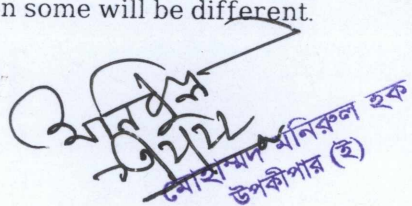 n some will be different.
মোহাম্মদ মনিরুল হক
উপকীপার (ই)